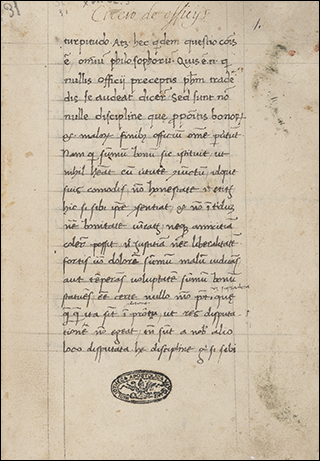 Cicero de officijs
1.
turpitudo Atq̃ hec q̃dem questio cõis
ẽ omiũ philosophoru Quis e.n. q
nullis officij preceptis phm trade
dis se audeat dicer̃ Sed sunt nõ
nulle discipline que ppositis bonoꝝ
et maloꝝ finibȝ officiũ omẽ
Nam q sũmũ bonũ sic istituit ut
nihil heat cũ uirtute iũctũ idq̃
suis comodis nõ honestate
hic si sibi ipẽ ↄsentiat et nõ
nẽ bonitate uicat neq̃ amicitiã
coler̃ possit ñ iustitiã nec liberalitatẽ
fortis ũo dolorẽ sũmũ malũ iudicãs
aut tẽperãs uoluptatẽ sũmũ bonũ
statuẽs eẽ certe nullo mõ pt que
ita sĩt i prõtu ut res disputa
tionẽ nõ egeat tñ sũt a nob alio
loco disputata he discipline si sibi